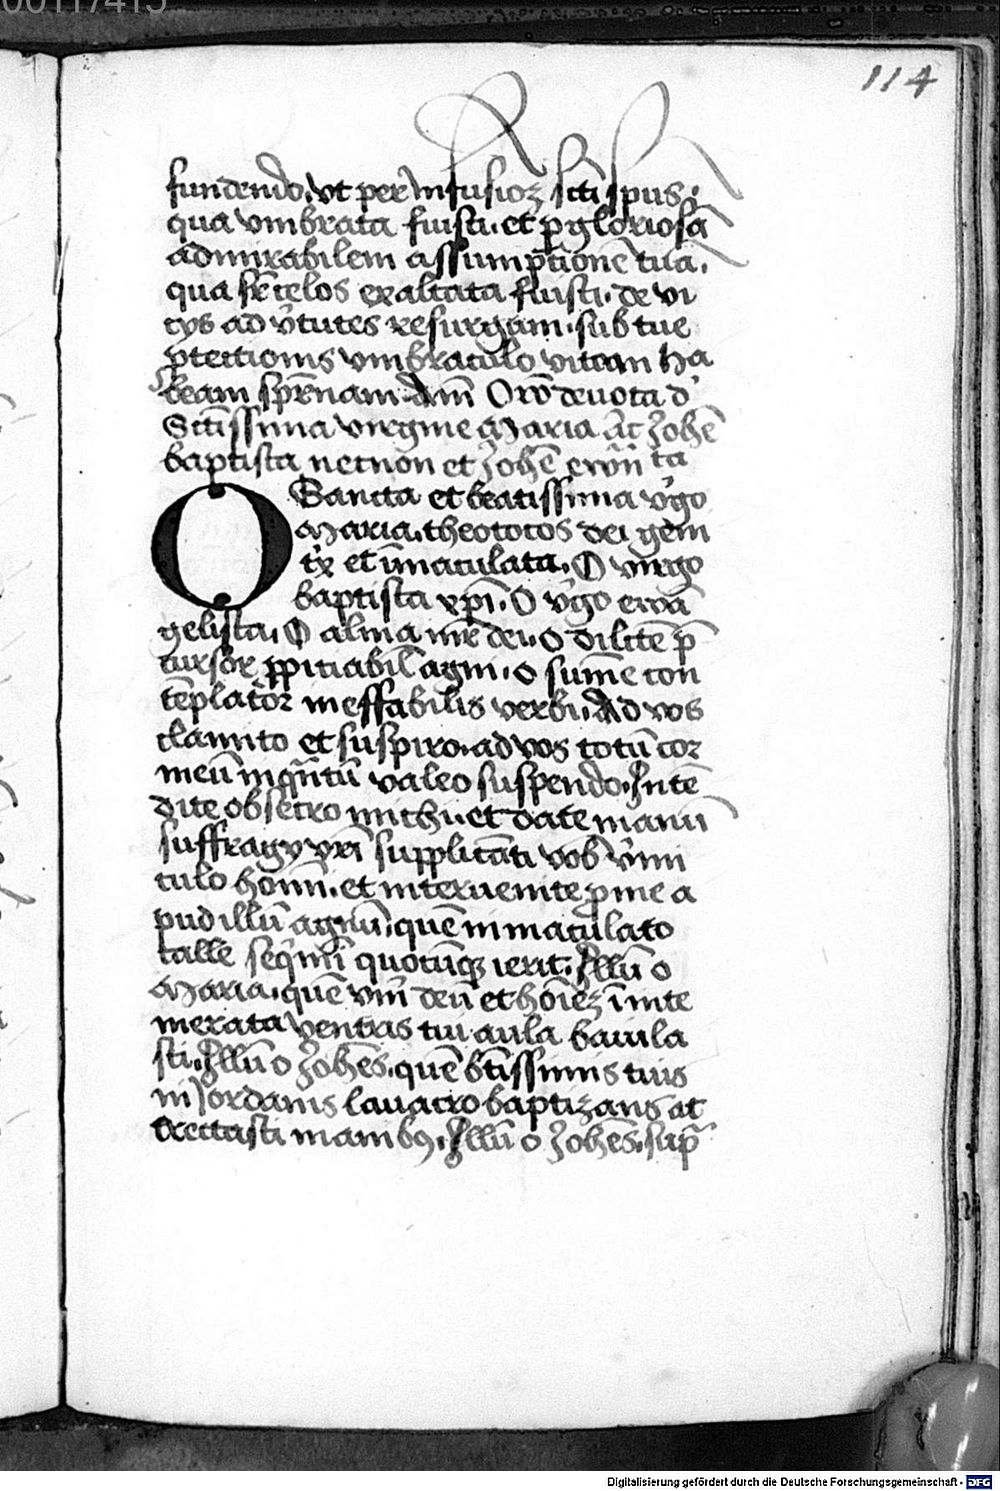 00117415
114
fundendo. vt per infusioz scti spus.
qua vmbrata fuisti. et p gloriosā
admirabilem assumptionē tuā.
qua sr̄ celos exaltata fuisti. de vi
cys ad v̓tutes resurgam. sub tue
ptectionis vmbraculo vitam ha
beam spr̄nam. Am̄ Oro͞ deuota d'
Sctīssima virgine Maria Ac Johē
baptista necnon et Johē ewn̄ ta
O Sancta et beatissima v̓go
Maria. theotocos dei geni
tx̓ et īmaculata. O virgo
baptista xp̄i. O v̓go ewā
gelista. O alma mr̄ dei. o dilcte p̄
cursor ppitiabil̄ agni. o sume con
tēplator ineffabilis verbi. Ad vos
clamito et suspiro. ad vos totū cor
meū inqn̄tū valeo suspendo. Intē
dite obsecro michi. et date manū
suffragy vr̄i supplicāti vob̄ v̓mi
culo homī. et interuenite p me a
pud illū agnū. quē immaculato
calle seq̓mī quocūq̢ ierit. Illū o
Maria. quē vm̄ deū et hōiez̄ inte
merata ventris tui aula baiula
sti. Illū o Johēs. quē bt̄issimis tuis
in Jordanis lauacro baptizans at
trectasti manibꝯ. Illū o Johēs. sup̄
Digitalisierung gefördert durch die Deutsche Forschungsgemeinschaft - DFG